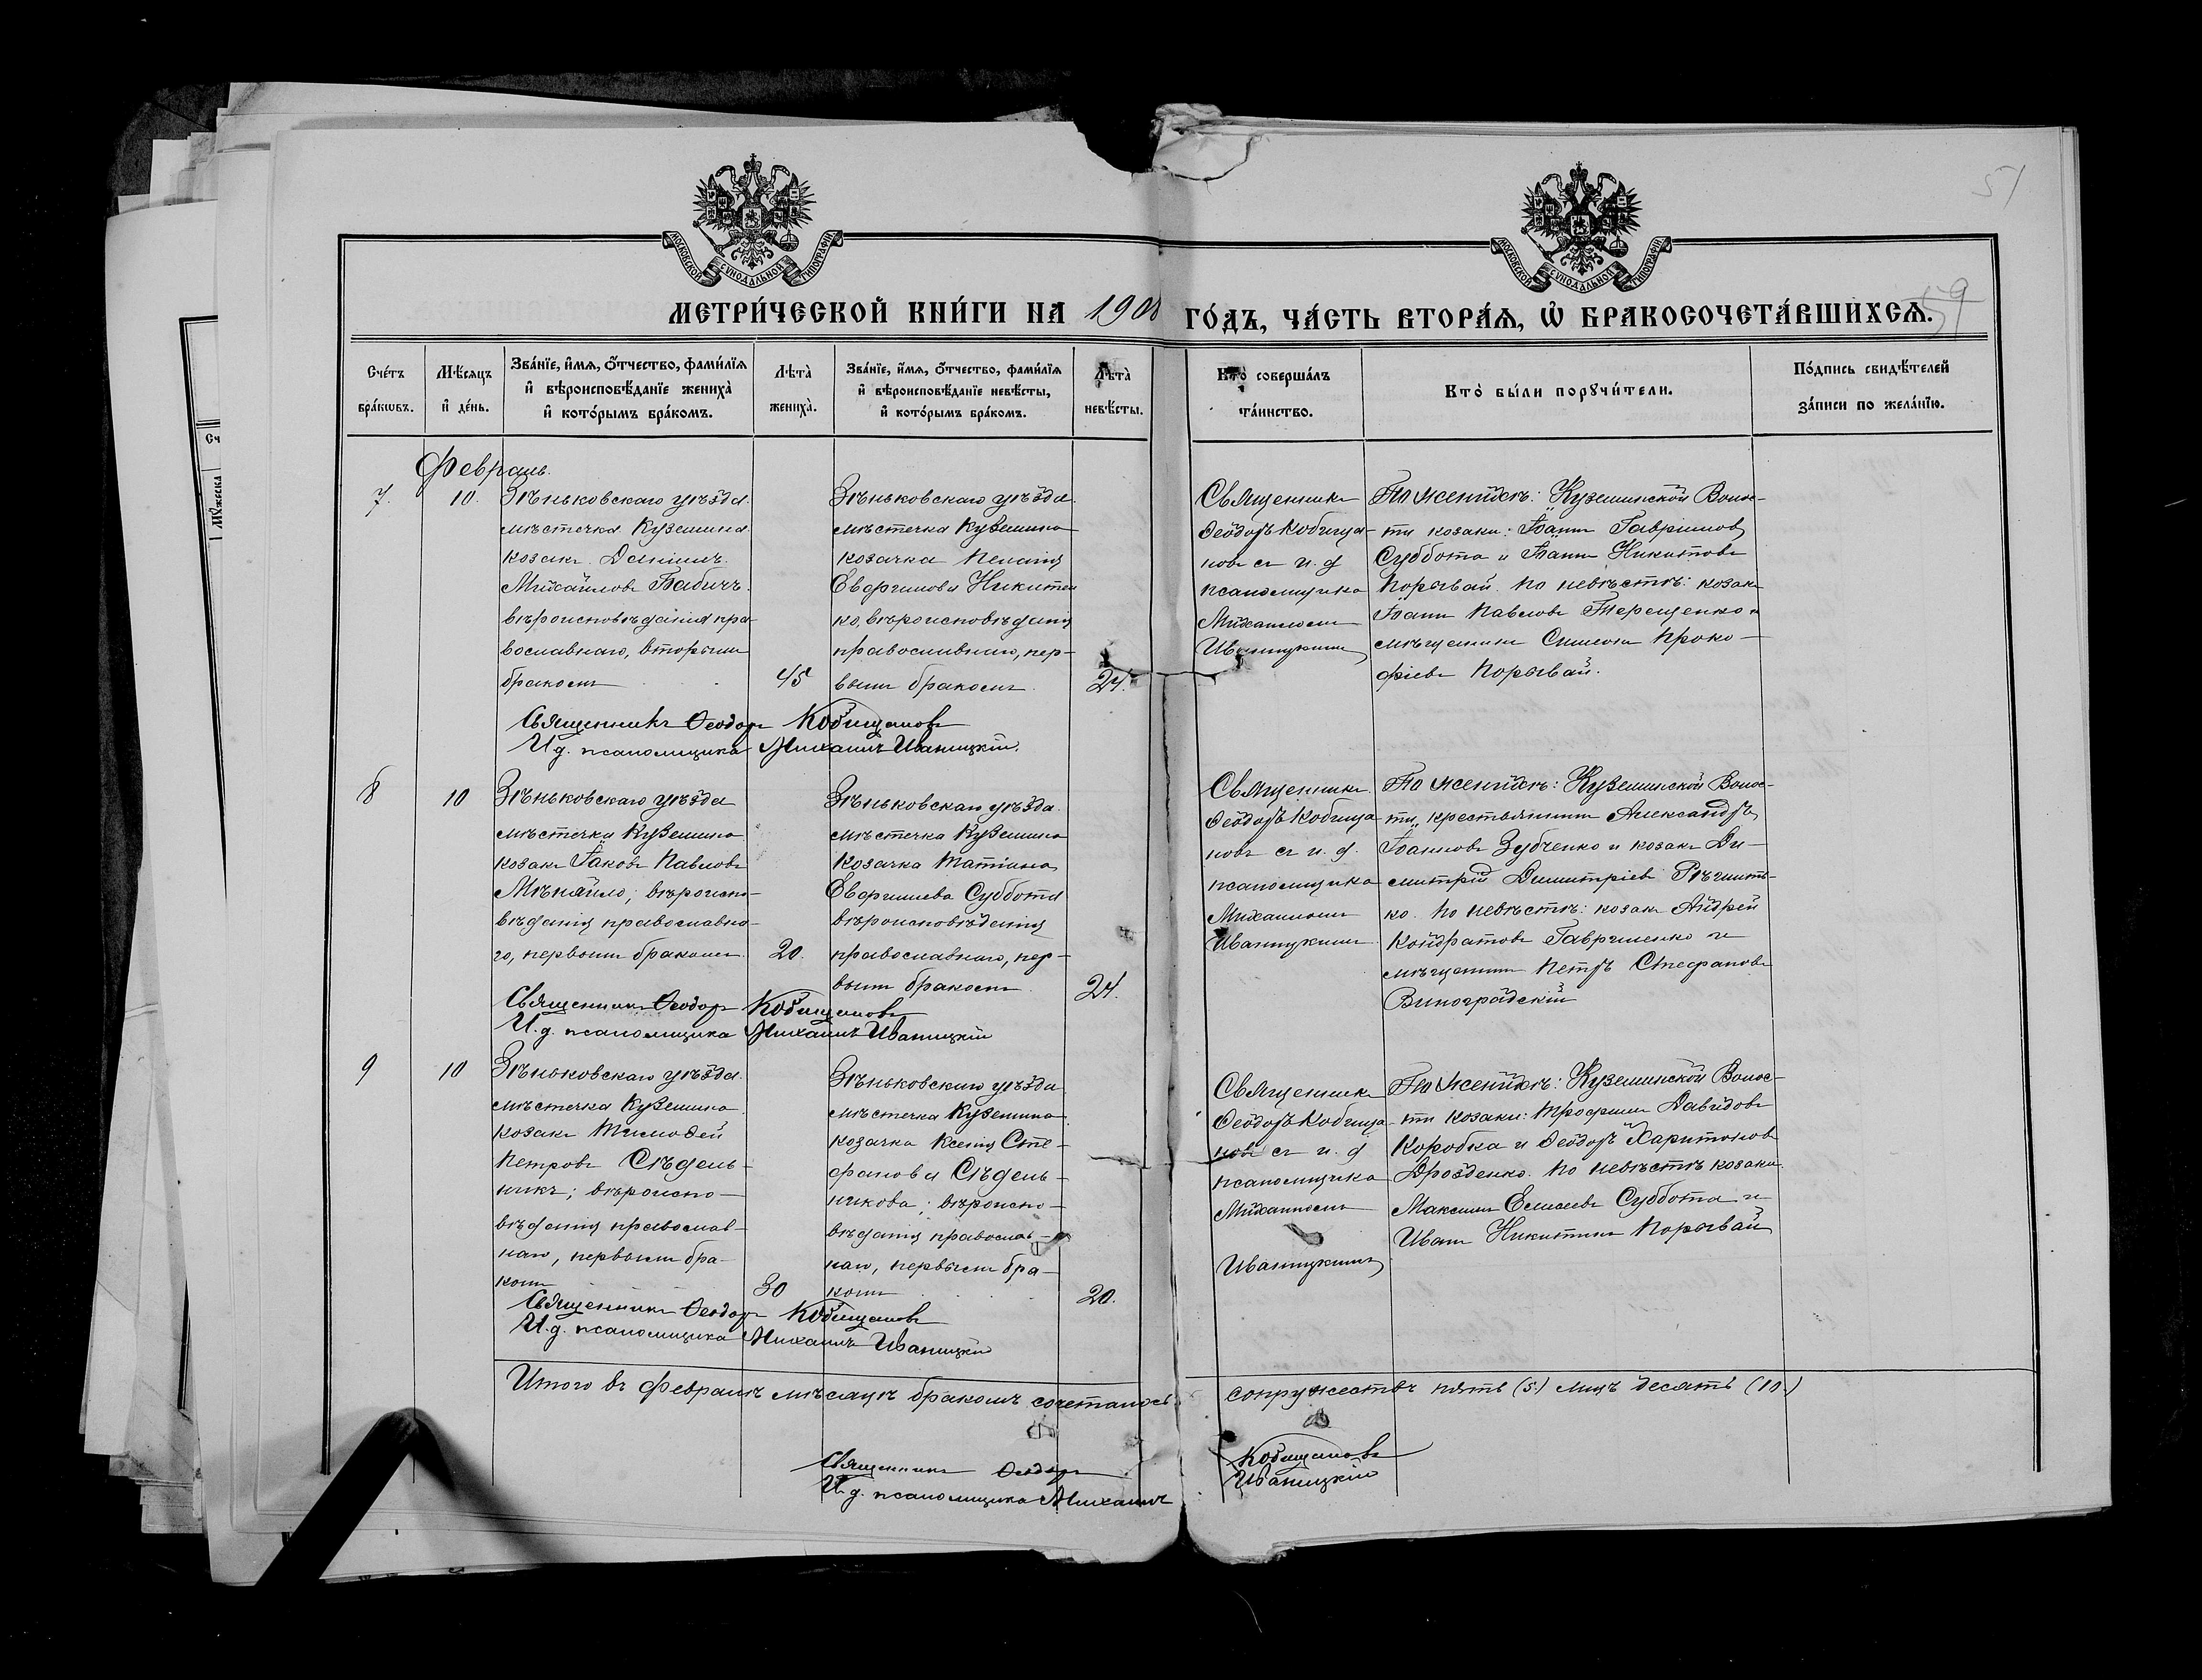 51
59
МОСКОВСКОЙ СѴНОДАЛЬНОЙ ТИПОГРАФІИ
МОСКОВСКОЙ СѴНОДАЛЬНОЙ ТИПОГРАФІИ
МЕТРИ́ЧЕСКОЙ КНИ́ГИ НА 1908 ГО́ДЪ, ЧА́СТЬ ВТОРА́Я, Ѡ БРАКОСОЧЕТА́ВШИХСЯ.
Сче́тъ бра́кѡвъ.
Мѣ́сяцъ и де́нь.
Зва́нїе, и́мя, о́тчество, фами́лїя и вѣроисповѣ́данїе жениха̀ и кото́рымъ бра́комъ.
Лѣта̀ жениха̀.
Зва́нїе, и́мя, о́тчество, фами́лїя и вѣроисповѣ́данїе невѣ́сты, и кото́рымъ бра́комъ.
Лѣта̀ невѣ́сты.
Кто̀ соверша́лъ та́инство.
Кто̀ бы́ли порꙋчи́тели.
По́дпись свидѣ́телей за́писи по жела́нїю.
Февраль.
7. 10.
Зѣньковскаго уѣзда
мѣстечка Куземина
козакъ Даніилъ
Михайловъ Бабичъ.
вѣроисповѣданія пра-
вославнаго, вторымъ
бракомъ 45
Зѣньковскаго уѣзда
мѣстечка Куземина
козачка Пелагія
Евфимова Никитен
ко, вѣроисповѣданія
православнаго, пер-
вымъ бракомъ. 24.
Священникъ
Ѳеодоръ Кобища-
новъ съ и. д
псаломщика
Михаиломъ
Иваницкимъ
По женихѣ: Куземинской Волос-
ти козаки: Іоаннъ Гавріиловъ
Суббота и Іоаннъ Никитовъ
Порывай. По невѣстѣ: козакъ
Іоаннъ Павловъ Терещенко и
мѣщанинъ Симеонъ Проко-
фіевъ Порывай.
Священникъ Ѳеодоръ Кобищановъ
И. д. псаломщика Михаилъ Иваницкій.
8 10
Зѣньковскаго уѣзда
мѣстечка Куземина
козакъ Іаковъ Павловъ
Мѣняйло; вѣроиспо-
вѣданія православна-
го, первымъ бракомъ. 20.
Зѣньковскаго уѣзда
мѣстечка Куземина
козачка Татіана
Суббота
вѣроисповѣданія
православнаго, пер-
вымъ бракомъ. 24.
Священникъ
Ѳеодоръ Кобища
новъ съ и. д.
псаломщика
Михаиломъ
Иваницкимъ
По женихѣ: Куземинской Волос-
ти крестьянинъ Александръ
Іоанновъ Зубченко и козакъ Ди-
митрій Димитріевъ
ко. По невѣстѣ: козакъ Андрей
Кондратовъ Гавриленко и
мѣщанинъ Петръ Стефановъ
Виноградскій
Священникъ Ѳеодоръ Кобищановъ
И. д. псаломщика Михаилъ Иваницкій
9 10
Зѣньковскаго уѣзда
мѣстечка Куземина
козакъ Тимоѳей
Петровъ Сѣдель-
никъ; вѣроиспо-
вѣданія православ-
наго, первымъ бра-
комъ 30
Зѣньковскаго уѣзда
мѣстечка Куземина
козачка Ксенія Сте-
фанова Сѣдель-
никова; вѣроиспо-
вѣданія православ-
наго, первымъ бра-
комъ 20.
Священникъ
Ѳеодоръ Кобища-
новъ съ и. д
псаломщика
Михаиломъ
Иваницкимъ
По женихѣ: Куземинской Волос-
ти козаки: Трофимъ Давидовъ
Коробка и Ѳеодоръ Харитоновъ
Дрозденко. По невѣстѣ козаки
Максимъ Елисеевъ Суббота и
Иванъ Никитинъ Порывай
Священникъ Ѳеодоръ Кобищановъ
И. д. псаломщика Михаилъ Иваницкій
Итого въ февралѣ мѣсяцѣ бракомъ сочеталось супружествъ пять (5.) лицъ десять (10.)
Священникъ Ѳеодоръ Кобищановъ
И. д. псаломщика Михаилъ Иваницкій
Сч
Мꙋжеска